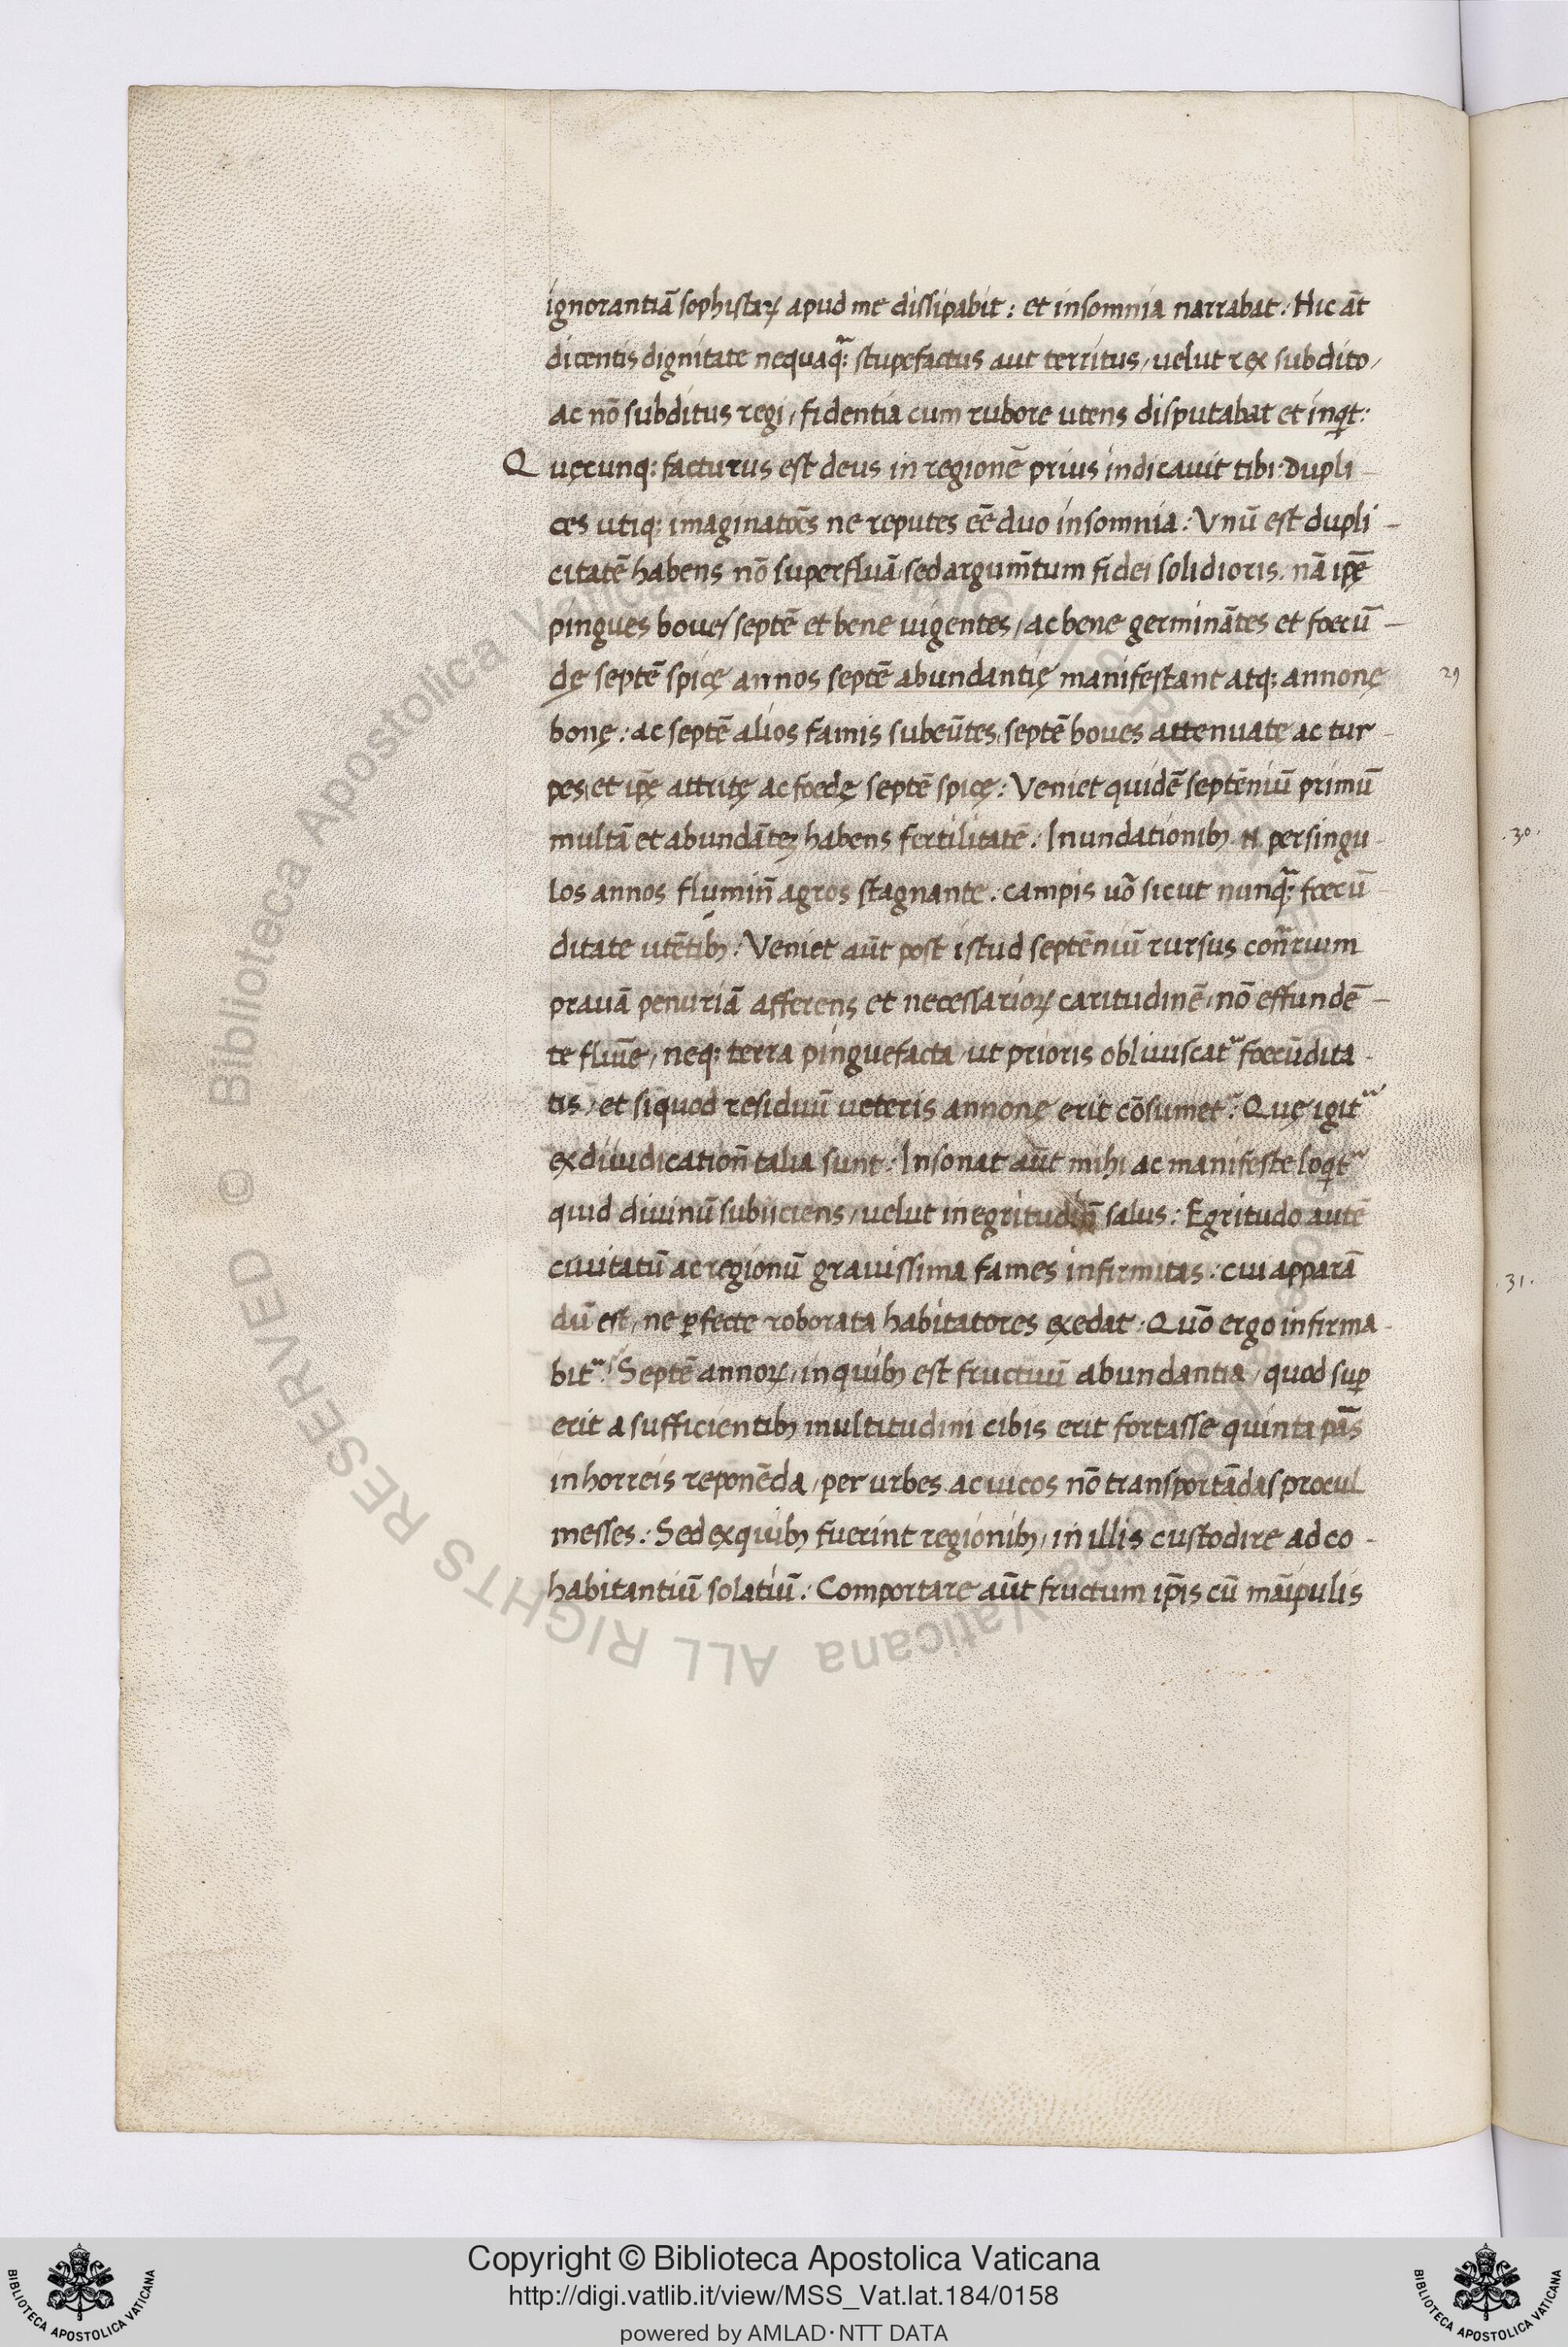 ignorantiā sophistaꝝ apud me dissipabit : et insomnia narrabat . Hic āt
dicentis dignitate nequaq̃ : stupefactus aut territus / uelut rex subdito /
ac nō subditus regi / fidentia cum rubore utens disputabat et inqt :
Q uęcunq: facturus est deus in regionē prius indicauit tibi . dupli -
ces utiq: imaginatōes ne reputes eē duo insomnia : Vnū est dupli -
citatē habens nō superfluā / sed argum̄tum fidei solidioris . nā ip̄ę
pingues boues septē et bene uigentes / ac bene germinātes et foecū -
dę septē spicę annos septē abundantię manifestant atq: annonę
29
bonę : ac septē alios famis subeūtes / septē boues attenuatę ac tur -
pes / et ip̄ę attritę ac foedę septē spicę : Veniet quidē septēniū primū
multā et abundātez habens fertilitatē . Inundationibꝫ .N. per singu -
.30.
los annos flumin̄ agros stagnante . campis uō sicut nunq̃ : foecū -
ditate utētibꝫ : Veniet aūt post istud septēniū rursus con̄rium
prauā penuriā afferens et necessarioꝝ caritudinē / nō effundē -
te fluuīe / neq: terra pinguefacta / ut prioris obliuiscat᷑ foecūdita -
tis / et siquod residuū ueteris annonę erit cōsumet᷑ : Quę igit᷑
ex diiudication̄ talia sunt : Insonat aūt mihi ac manifeste loqt᷑
quid diuinū subiiciens / uelut in egritudin̄ salus : Egritudo autē
ciuitatū ac regionū grauissima fames infirmitas : cui apparā
.31.
dū est / ne ꝑfecte roborata habitatores exedat . Quō ergo infirma -
bit᷑ : Septē annoꝝ / in quibꝫ est fructuū abundantia / quod suꝑ
erit a sufficientibꝫ multitudini cibis erit fortasse quinta pās
in horreis reponēda / per urbes ac uicos nō transportādas procul
messes : Sed ex quibꝫ fuerint regionibꝫ / in illis custodire ad co -
habitantiū solatiū : Comportare aūt fructum ip̄is cū māipulis
© Biblioteca Apostolica Vaticana ALL RIGHTS RESERVED
Copyright © Biblioteca Apostolica Vaticana
http://digi.vatlib.it/view/MSS_Vat.lat.184/0158
powered by AMLAD·NTT DATA
BIBLIOTECA APOSTOLICA VATICANA
BIBLIOTECA APOSTOLICA VATICANA